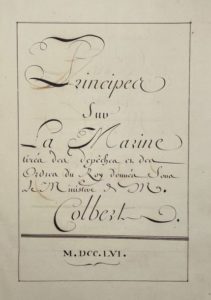 Principes
Sur
La Marine
tirés des depêches et des
Ordres du Roy donnés Sous
le Ministere de M.
Colbert.
M.DCC.LVI.